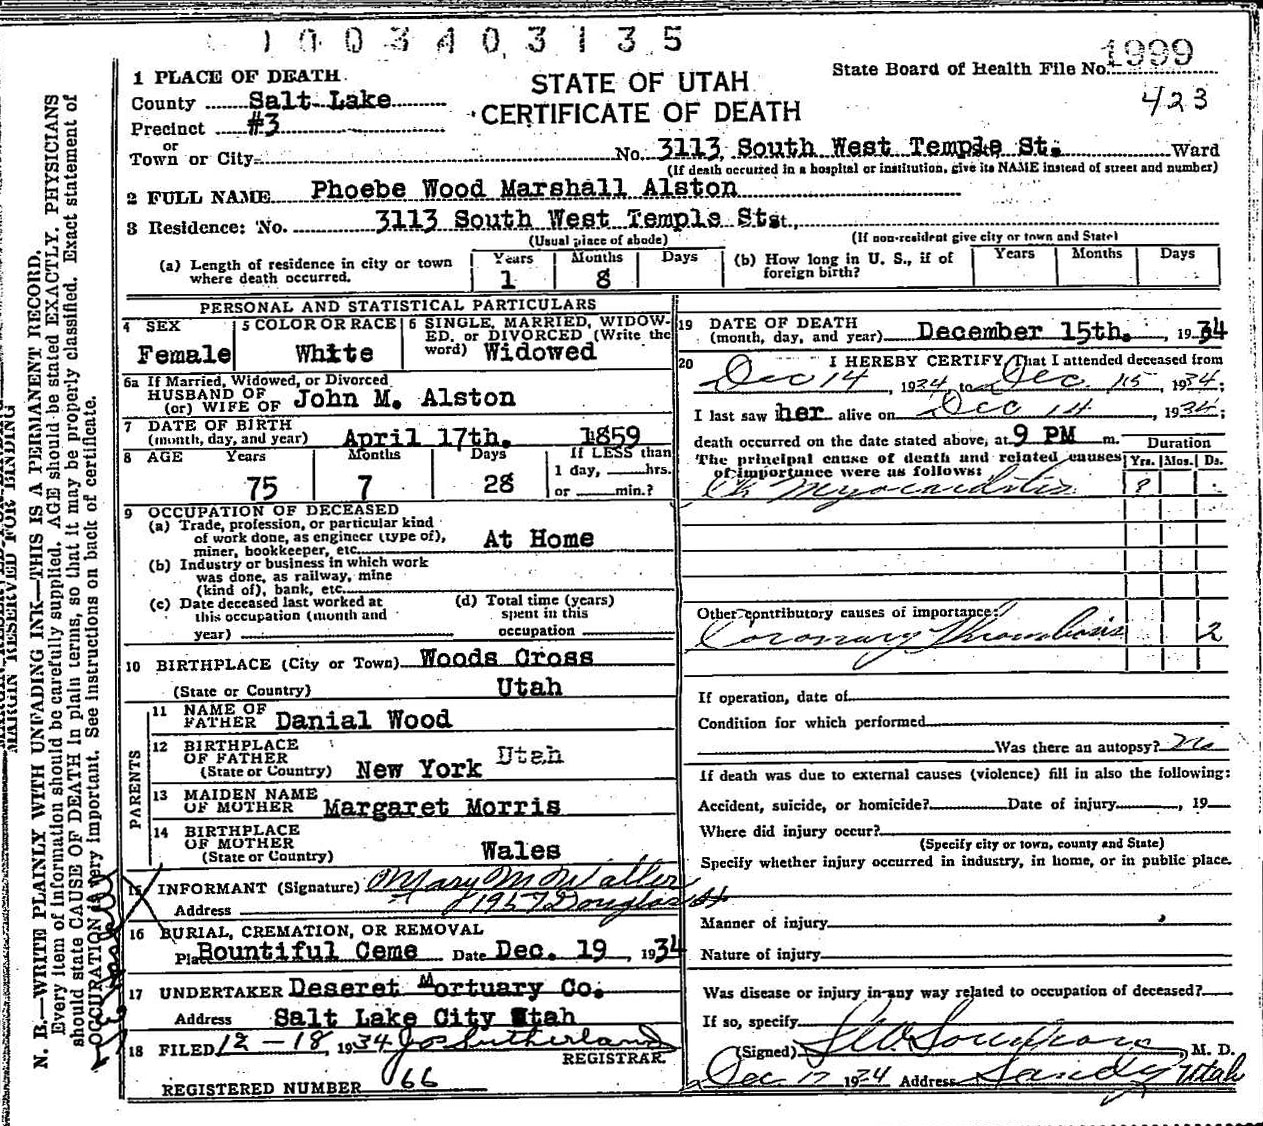 1003403135
1 PLACE OF DEATH.
STATE OF UTAH
CERTIFICATE OF DEATH
State Board of Health File No. 1999
423
County Salt Lake
Precinct #3
or
Town or City No. 3113 South West Temple St. Ward
(If death occurred in a hospital or institution, give its NAME instead of street and number)
2 FULL NAME Phoebe Wood Marshall Alston
3 Residence: No. 3113 South West Temple St. st.,
(Usual place of abode) (If non-resident give city or town and State)
(a) Length of residence in city or town where death occurred. Years 1 Months 8 Days
(b) How long in U. S., if of foreign birth? Years Months Days
PERSONAL AND STATISTICAL PARTICULARS
4 SEX Female
5 COLOR OR RACE White
6 SINGLE, MARRIED, WIDOWED, or DIVORCED (Write the word) Widowed
6a If Married, Widowed, or Divorced
HUSBAND OF
(or) WIFE OF John M. Alston
7 DATE OF BIRTH
(month, day, and year) April 17th. 1859
8 AGE Years 75 Months 7 Days 28
If LESS than
1 day, hrs.
or min.?
9 OCCUPATION OF DECEASED
(a) Trade, profession, or particular kind
of work done, as engineer (type of),
miner, bookkeeper, etc. At Home
(b) Industry or business in which work
was done, as railway, mine
(kind of), bank, etc.
(c) Date deceased last worked at
this occupation (month and
year)
(d) Total time (years)
spent in this
occupation
10 BIRTHPLACE (City or Town) Woods Cross
(State or Country) Utah
PARENTS
11 NAME OF
FATHER Danial Wood
12 BIRTHPLACE
OF FATHER Utah
(State or Country) New York
13 MAIDEN NAME
OF MOTHER Margaret Morris
14 BIRTHPLACE
OF MOTHER
(State or Country) Wales
15 INFORMANT (Signature) Mary M Waller
Address 1957 Douglas St
16 BURIAL, CREMATION, OR REMOVAL
Place Bountiful Ceme Date Dec. 19, 1934
17 UNDERTAKER Deseret Mortuary Co.
Address Salt Lake City Utah
18 FILED 12-18, 1934 Jos Sutherland
REGISTRAR.
REGISTERED NUMBER 66
19 DATE OF DEATH
(month, day, and year) December 15th., 1934
20 I HEREBY CERTIFY, That I attended deceased from
Dec 14, 1934, to Dec 15, 1934;
I last saw her alive on Dec 14, 1934;
death occurred on the date stated above, at 9 PM m.
Duration
The principal cause of death and related causes
of importance were as follows:
Yrs. Mos. Ds.
Ch Myocarditis ?
Other contributory causes of importance:
Coronary Thrombosis 2
If operation, date of
Condition for which performed
Was there an autopsy? No
If death was due to external causes (violence) fill in also the following:
Accident, suicide, or homicide? Date of injury , 19
Where did injury occur?
(Specify city or town, county and State)
Specify whether injury occurred in industry, in home, or in public place.
Manner of injury
Nature of injury
Was disease or injury in any way related to occupation of deceased?
If so, specify
(Signed) , M. D.
Dec 17 1934 Address Sandy Utah
MARGIN RESERVED FOR BINDING
N. B.—WRITE PLAINLY WITH UNFADING INK—THIS IS A PERMANENT RECORD.
Every item of information should be carefully supplied. AGE should be stated EXACTLY. PHYSICIANS
should state CAUSE OF DEATH in plain terms, so that it may be properly classified. Exact statement of
OCCUPATION is very important. See instructions on back of certificate.